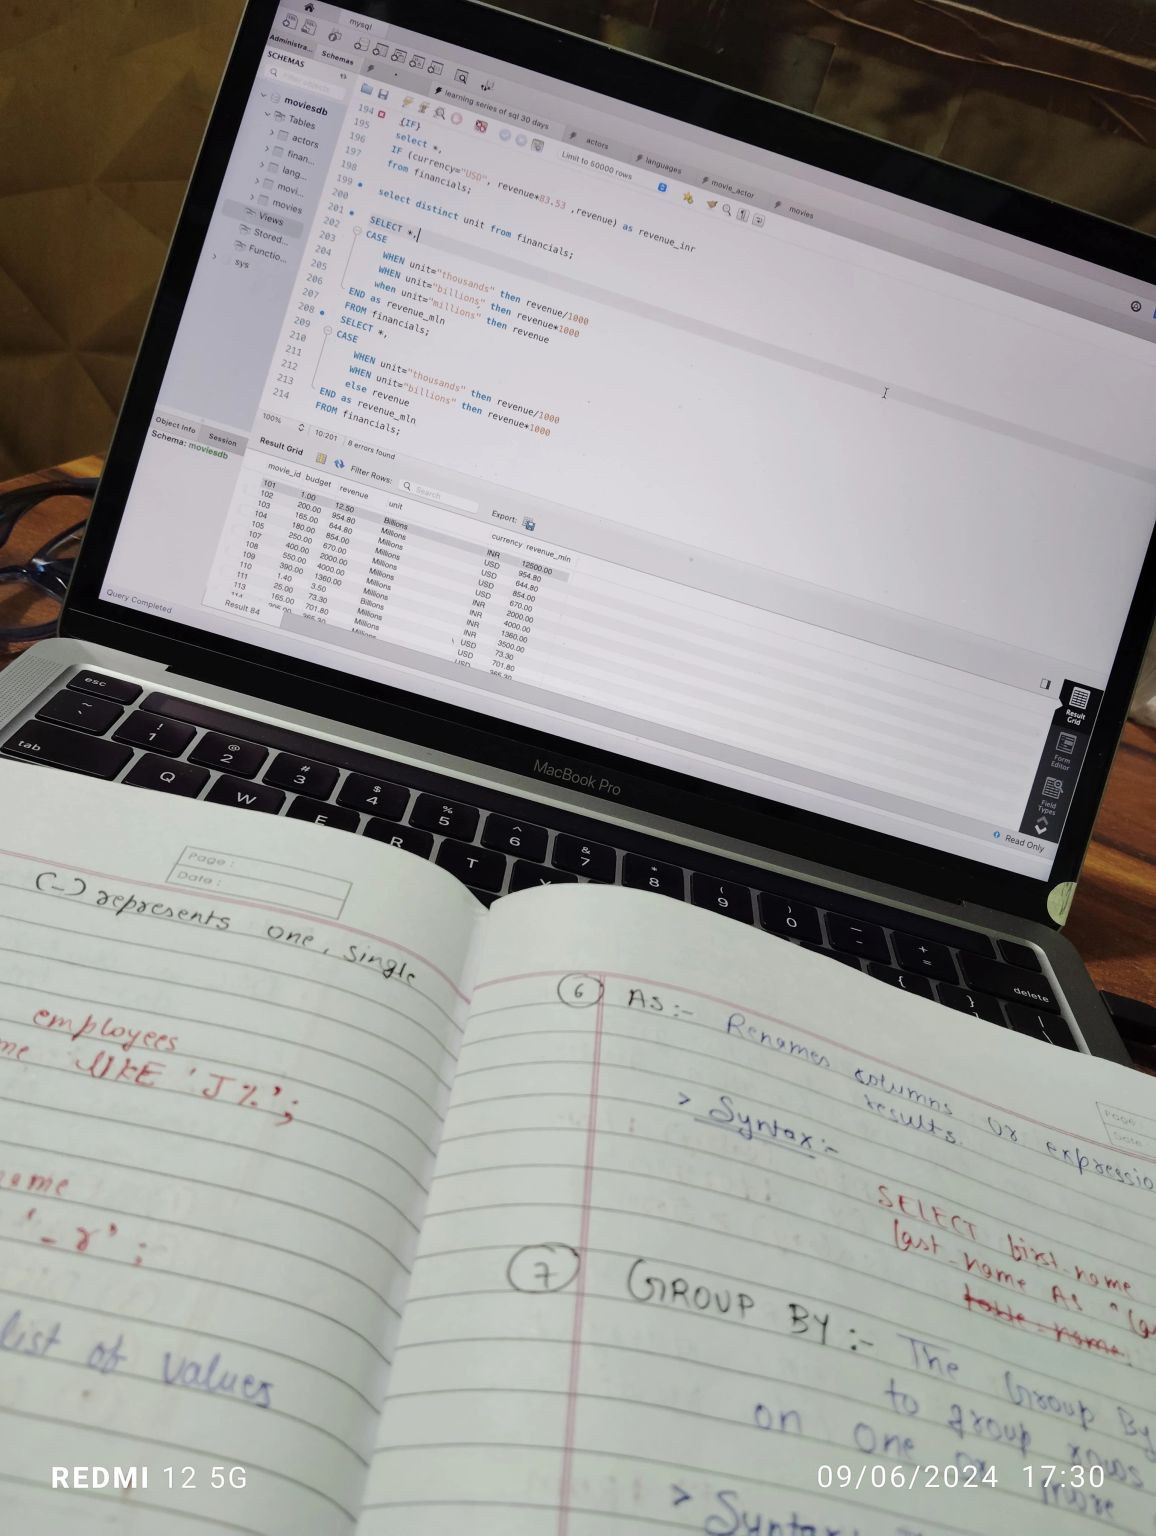 mysql
Administra...
Schemas
SCHEMAS
Filter objects
moviesdb
Tables
actors
finan...
lang...
movi...
movies
Views
Stored...
Functio...
sys
learning series of sql 30 days
actors
languages
movie_actor
movies
Limit to 50000 rows
194 {IF}
195 select *,
196 IF (currency="USD", revenue*83.53 ,revenue) as revenue_inr
197 from financials;
198
199 select distinct unit from financials;
200
201 SELECT *,
202 CASE
203 WHEN unit="thousands" then revenue/1000
204 WHEN unit="billions" then revenue*1000
205 when unit="millions" then revenue
206 END as revenue_mln
207 FROM financials;
208 SELECT *,
209 CASE
210 WHEN unit="thousands" then revenue/1000
211 WHEN unit="billions" then revenue*1000
212 else revenue
213 END as revenue_mln
214 FROM financials;
100%
10:201
8 errors found
Object Info
Session
Schema: moviesdb
Result Grid
Filter Rows:
Search
Export:
movie_id budget revenue unit currency revenue_mln
101 1.00 12.50 Billions INR 12500.00
102 200.00 954.80 Millions USD 954.80
103 165.00 644.80 Millions USD 644.80
104 180.00 854.00 Millions USD 854.00
105 250.00 670.00 Millions USD 670.00
107 400.00 2000.00 Millions INR 2000.00
108 550.00 4000.00 Millions INR 4000.00
109 390.00 1360.00 Millions INR 1360.00
110 1.40 3.50 Billions INR 3500.00
111 25.00 73.30 Millions USD 73.30
113 165.00 701.80 Millions USD 701.80
Result 84
Query Completed
Result Grid
Form Editor
Field Types
Read Only
MacBook Pro
esc
~ `
! 1
@ 2
# 3
$ 4
% 5
^ 6
& 7
* 8
( 9
) 0
+ =
delete
tab
Q
W
E
R
T
Y
{
}
Page :
Date :
(-) represents one, single
employees
LIKE 'J%';
'_r';
list of values
Page :
Date :
6 AS:- Renames columns or expressio
results.
> Syntax:-
SELECT first_name
last_name AS
table_name
7 GROUP BY :- The Group By
to group rows
on one or more
> Syntax:
REDMI 12 5G
09/06/2024 17:30